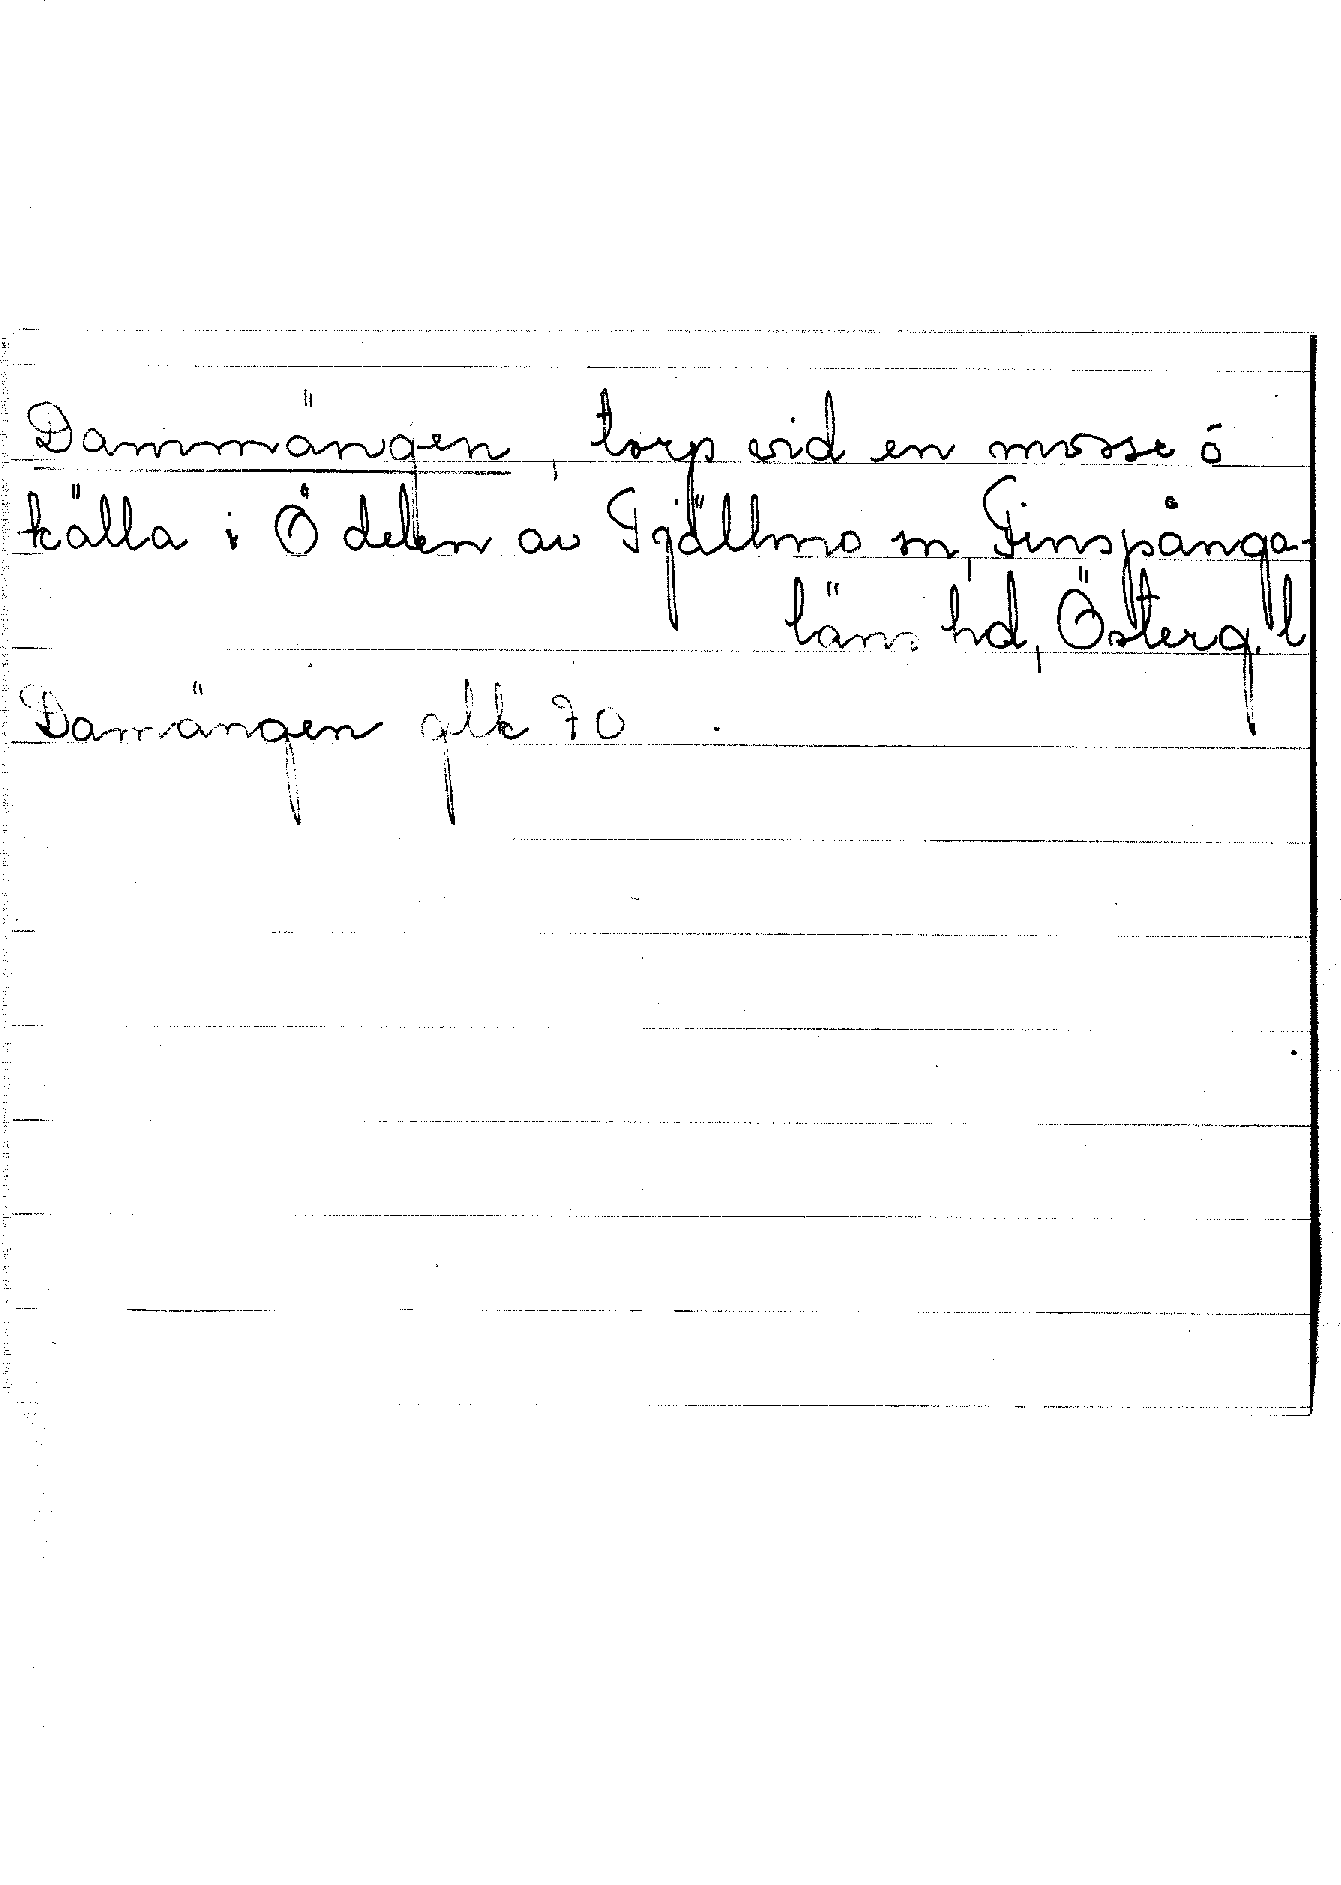 Dammängen, torp vid en mosse o
källa i Ö delen av Tjällmo sn, Finspånga-
läns hd, Österg. l
Damängen glk 70